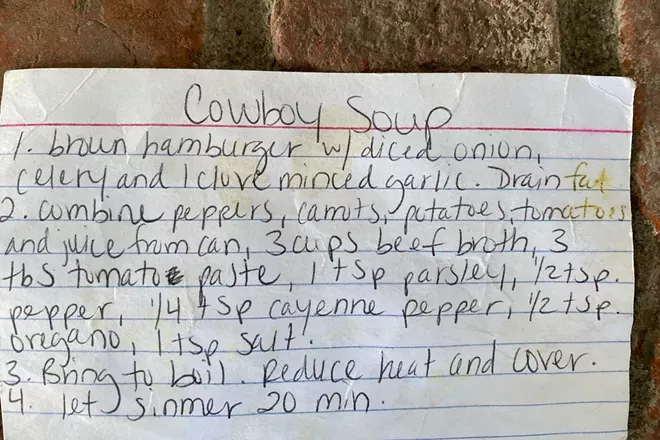 Cowboy Soup
1. brown hamburger w/ diced onion,
celery and 1 clove minced garlic. Drain fat
2. combine peppers, carrots, potatoes, tomatoes
and juice from can, 3 cups beef broth, 3
tbs tomato paste, 1 tsp parsley, 1/2 tsp.
pepper, 1/4 tsp cayenne pepper, 1/2 tsp.
oregano, 1 tsp salt.
3. Bring to boil. Reduce heat and cover.
4. let simmer 20 min.